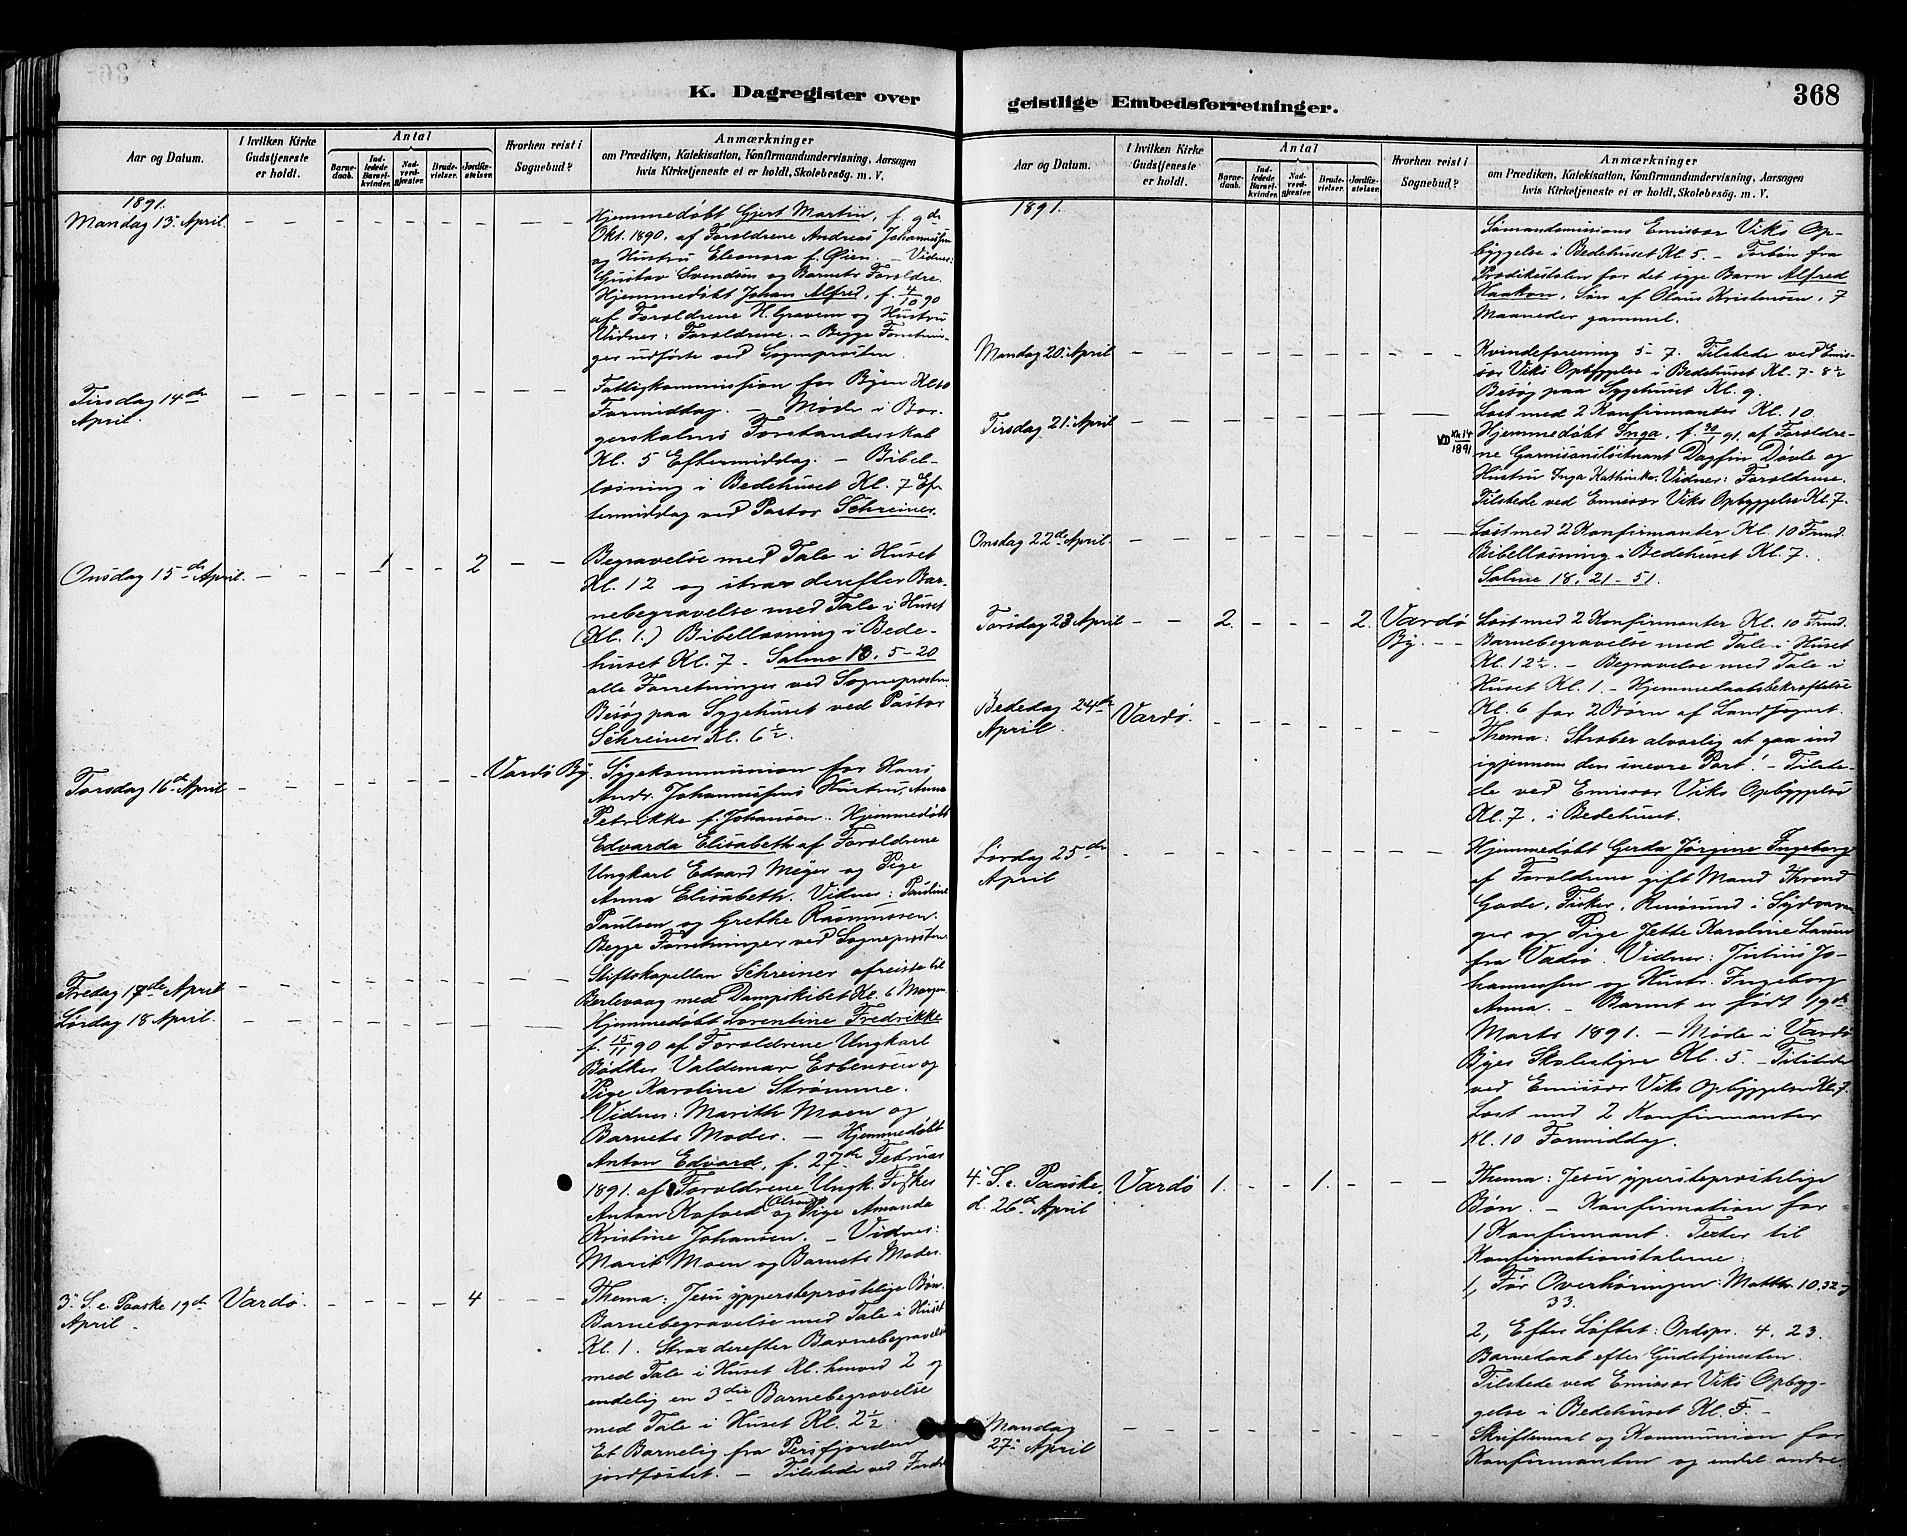 K. Dagregister over
Aar og Datum.
I hvilken Kirke
Gudstjeneste
er holdt.
Antal
Barne-
daab.
Ind-
ledede
Barsel-
kvinder.
Nad-
verd-
gjester.
Brude-
vielser.
Jordfæ-
stelser.
Hvorhen reist i
Sognebud?
Anmærkninger
om Prædiken, Katekisation, Konfirmandundervisning, Aarsagen
hvis Kirketjeneste ei er holdt, Skolebesøg. m. V.
1891.
Mandag 13. April.
Hjemmedøbt Gjert Martin, f. 9de
Okt. 1890, af Forældrene Andreas Johannessen
og Hustru Eleonora f. Øien. - Vidner:
Gustav Svendsen og Barnets Forældre.
Hjemmedøbt Johan Alfred, f. 4/10 90
af Forældrene H. Gravem og Hustru
Vidner: Forældrene. - Begge Forretnin-
ger udførte ved Sogneprosten.
Tirsdag 14de
April.
Fattigkommission for Byen Kl. 10
Formiddag. - Møde i Bor-
gerskolens Forstanderskab
Kl. 5 Eftermiddag. - Bibel-
læsning i Bedehuset Kl. 7 Ef-
termiddag ved Pastor Schreiner.
Onsdag 15de April. 1 2
Begravelse med Tale i Huset
Kl. 12 og strax derefter Bar-
nebegravelse med Tale i Huset
(Kl. 1.) Bibellæsning i Bede-
huset Kl. 7 - Salme 18. 5-20
alle Forretninger ved Sogneprosten.
Besøg paa Sygehuset ved Pastor
Schreiner Kl. 6½.
Torsdag 16de April Vardø By.
Sygekommunion for Hans
Andr. Johannessens Hustru, Anna
Petrikke f. Johansen. Hjemmedøbt
Edvarda Elisabeth af Forældrene
Ungkarl Edvard Meyer og Pige
Anna Elisabeth. Vidner: Pauline
Paulsen og Grethe Rasmussen.
Begge Forretninger ved Sogneprosten.
Fredag 17de April
Stiftskapellan Schreiner afreiste til
Berlevaag med Dampskibet Kl. 6 Morgen
Lørdag 18 April.
Hjemmedøbt Lorentine Fredrikke
f. 15/11 90 af Forældrene Ungkarl
Bødker Valdemar Esbensen og
Pige Karoline Strømme.
Vidner: Marith Moen og
Barnets Moder. - Hjemmedøbt
Anton Edvard, f. 27de Februar
1891. af Forældrene Ungk. Fisker
Anton Kofoed (Olsen) og Pige Amanda
Kristine Johansen. - Vidner:
Marit Moen og Barnets Moder.
3. S. e. Paaske 19de
April
Vardø. 4
Thema: Jesu ypperstepræstelige Bøn.
Barnebegravelse med Tale i Huset
Kl. 1. Strax derefter Barnebegravelse
med Tale i Huset Kl. henved 2 og
endelig en 3die Barnebegravelse
med Tale i Huset Kl. 2½
Et Barnelig fra Persfjorden
jordfæstet. - Tilstede ved
geistlige Embedsforretninger.
368
Aar og Datum.
I hvilken Kirke
Gudstjeneste
er holdt.
Antal
Barne-
daab.
Ind-
ledede
Barsel-
kvinder.
Nad-
verd-
gjester.
Brude-
vielser.
Jordfæ-
stelser.
Hvorhen reist i
Sognebud?
Anmærkninger
om Prædiken, Katekisation, Konfirmandundervisning, Aarsagen
hvis Kirketjeneste ei er holdt, Skolebesøg. m. V.
1891.
Sømandsmissions Emissær Viks Op-
byggelse i Bedehuset Kl. 5. - Forbøn fra
Prædikestolen for det syge Barn Alfred
Haakon, Søn af Olaus Kristensen, 7
Maaneder gammel.
Mandag 20. April
Kvindeforening 5-7. Tilstede ved Emis-
sær Viks Opbyggelse i Bedehuset Kl. 7-8½
Besøg paa Sygehuset Kl. 9.
Tirsdag 21. April
Læst med 2 Konfirmanter Kl. 10
14
1891
Hjemmedøbt Inga, f. 30/1 91. af Forældre-
ne Garnisonsløitnant Dagfin Døvle og
Hustru Inga Kathinka. Vidner: Forældrene.
Tilstede ved Emissær Viks Opbyggelse Kl. 7.
Onsdag 22de April.
Læst med 2 Konfirmanter Kl. 10 Formd.
Bibellæsning i Bedehuset Kl. 7.
Salme 18. 21-51.
Torsdag 23 April 2. 2. Vardø
By.
Læst med 2 Konfirmanter Kl. 10 Formd.
Barnebegravelse med Tale i Huset
Kl. 12½. - Begravelse med Tale i
Huset Kl. 1. - Hjemmedaabsbekræftelse
Kl. 6 for 2 Børn af Landsognet.
Bededag 24de
April.
Vardø.
Thema: Stræber alvorlig at gaa ind
igjennem den snevre Port! - Tilste-
de ved Emissær Viks Opbyggelse
Kl. 7. i Bedehuset.
Lørdag 25de
April
Hjemmedøbt Gerda Jørgine Ingeborg
af Forældrene gift Mand Thrond
Gade, Fisker, Renøsund i Sydvaran-
ger og Pige Jette Karoline Laura
fra Vadsø. Vidner: Julius Jo-
hannessen og Hustr. Ingeborg
Anna. - Barnet er født 19de
Marts 1891. - Møde i Vardø
Byes Skolestyre Kl. 5 - Tilstede
ved Emissær Viks Opbyggelse Kl. 7.
Læst med 2 Konfirmanter
Kl. 10 Formiddag.
4. S. e. Paaske,
d. 26de April
Vardø 1. 1.
Thema: Jesu ypperstepræstelige
Bøn. - Konfirmation for
1 Konfirmant. Texter til
Konfirmationstalerne:
1, Før Overhøringen: Matth. 10. 32-
33.
2, Efter Løftet: Ordspr. 4. 23.
Barnedaab efter Gudstjenesten.
Tilstede ved Emissær Viks Opbyg-
gelse i Bedehuset Kl. 5 -
Mandag
27. April
Skriftemaal og Kommunion for
Konfirmanten og endel andre